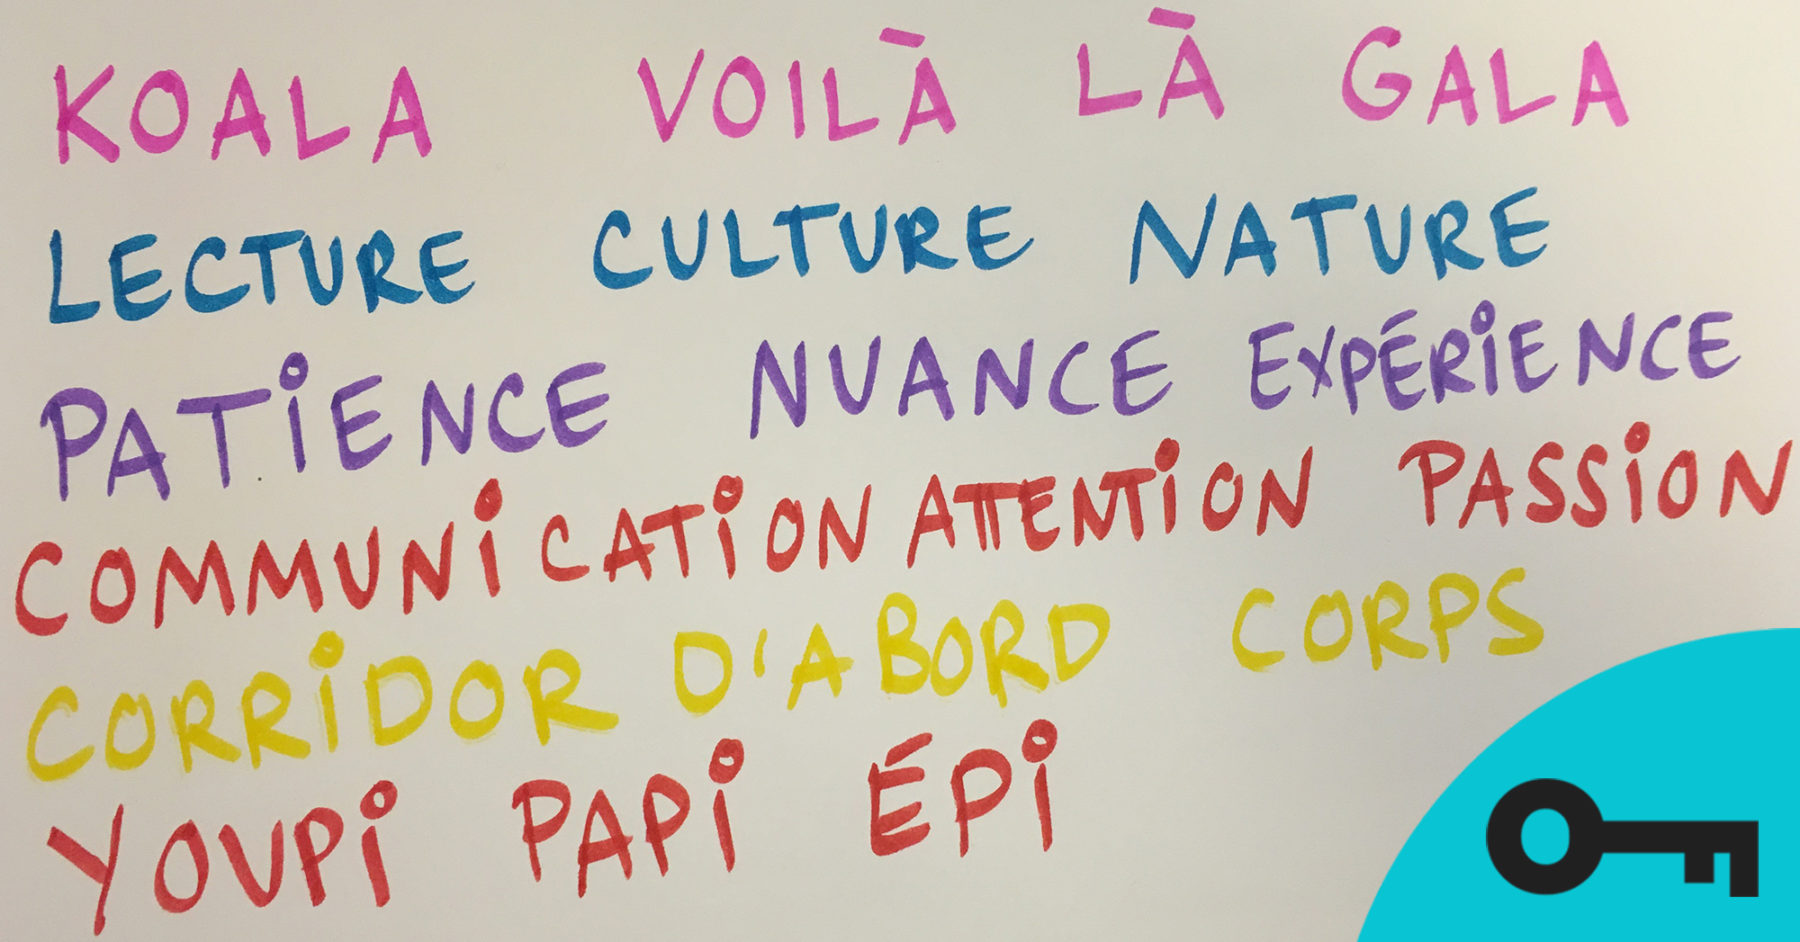 KOALA VOILÀ LÀ GALA
LECTURE CULTURE NATURE
PATiENCE NUANCE EXPÉRiENCE
COMMUNiCATiON ATTENTiON PASSiON
CORRiDOR D'ABORD CORPS
YOUPi PAPi ÉPi